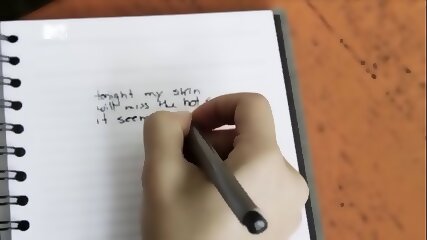 tonight my skin
will miss the hot
it seem